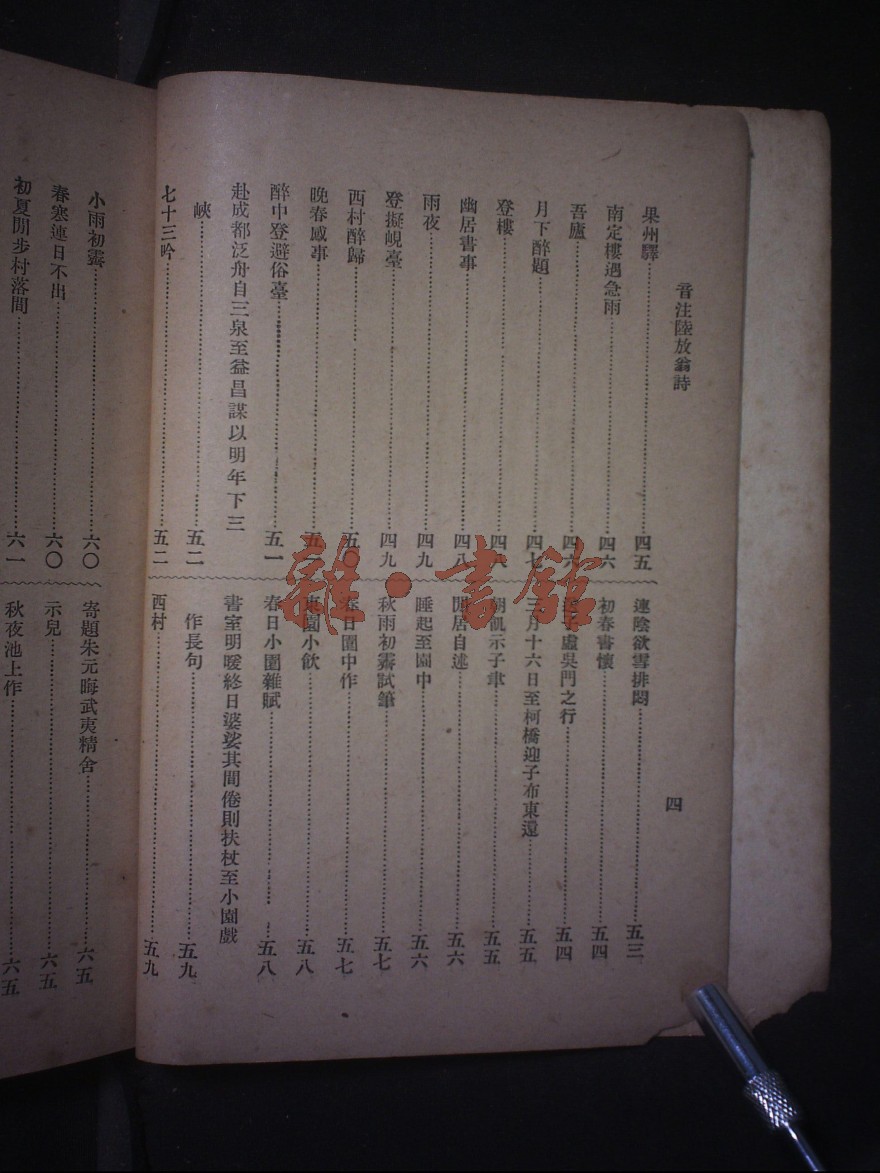 音注陸放翁詩
四
果州驛……四五
南定樓遇急雨……四六
吾廬……四六
月下醉題……四七
登樓……四
幽居書事……四八
雨夜……四九
登擬峴臺……四九
西村醉歸……五〇
晚春感事……五
醉中登避俗臺……五一
赴成都泛舟自三泉至益昌謀以明年下三
峽……五二
七十三吟……五二
連陰欲雪排悶……五三
初春書懷……五四
子虡吳門之行……五四
三月十六日至柯橋迎子布東還……五五
朝飢示子聿……五五
閒居自述……五六
睡起至園中……五六
秋雨初霽試筆……五七
春日園中作……五七
東園小飲……五八
春日小園雜賦……五八
書室明暖終日婆娑其間倦則扶杖至小園戲
作長句……五九
西村……五九
小雨初霽……六〇
春寒連日不出……六〇
初夏閒步村落間……六一
寄題朱元晦武夷精舍……六五
示兒……六五
秋夜池上作……六五
雜·書館